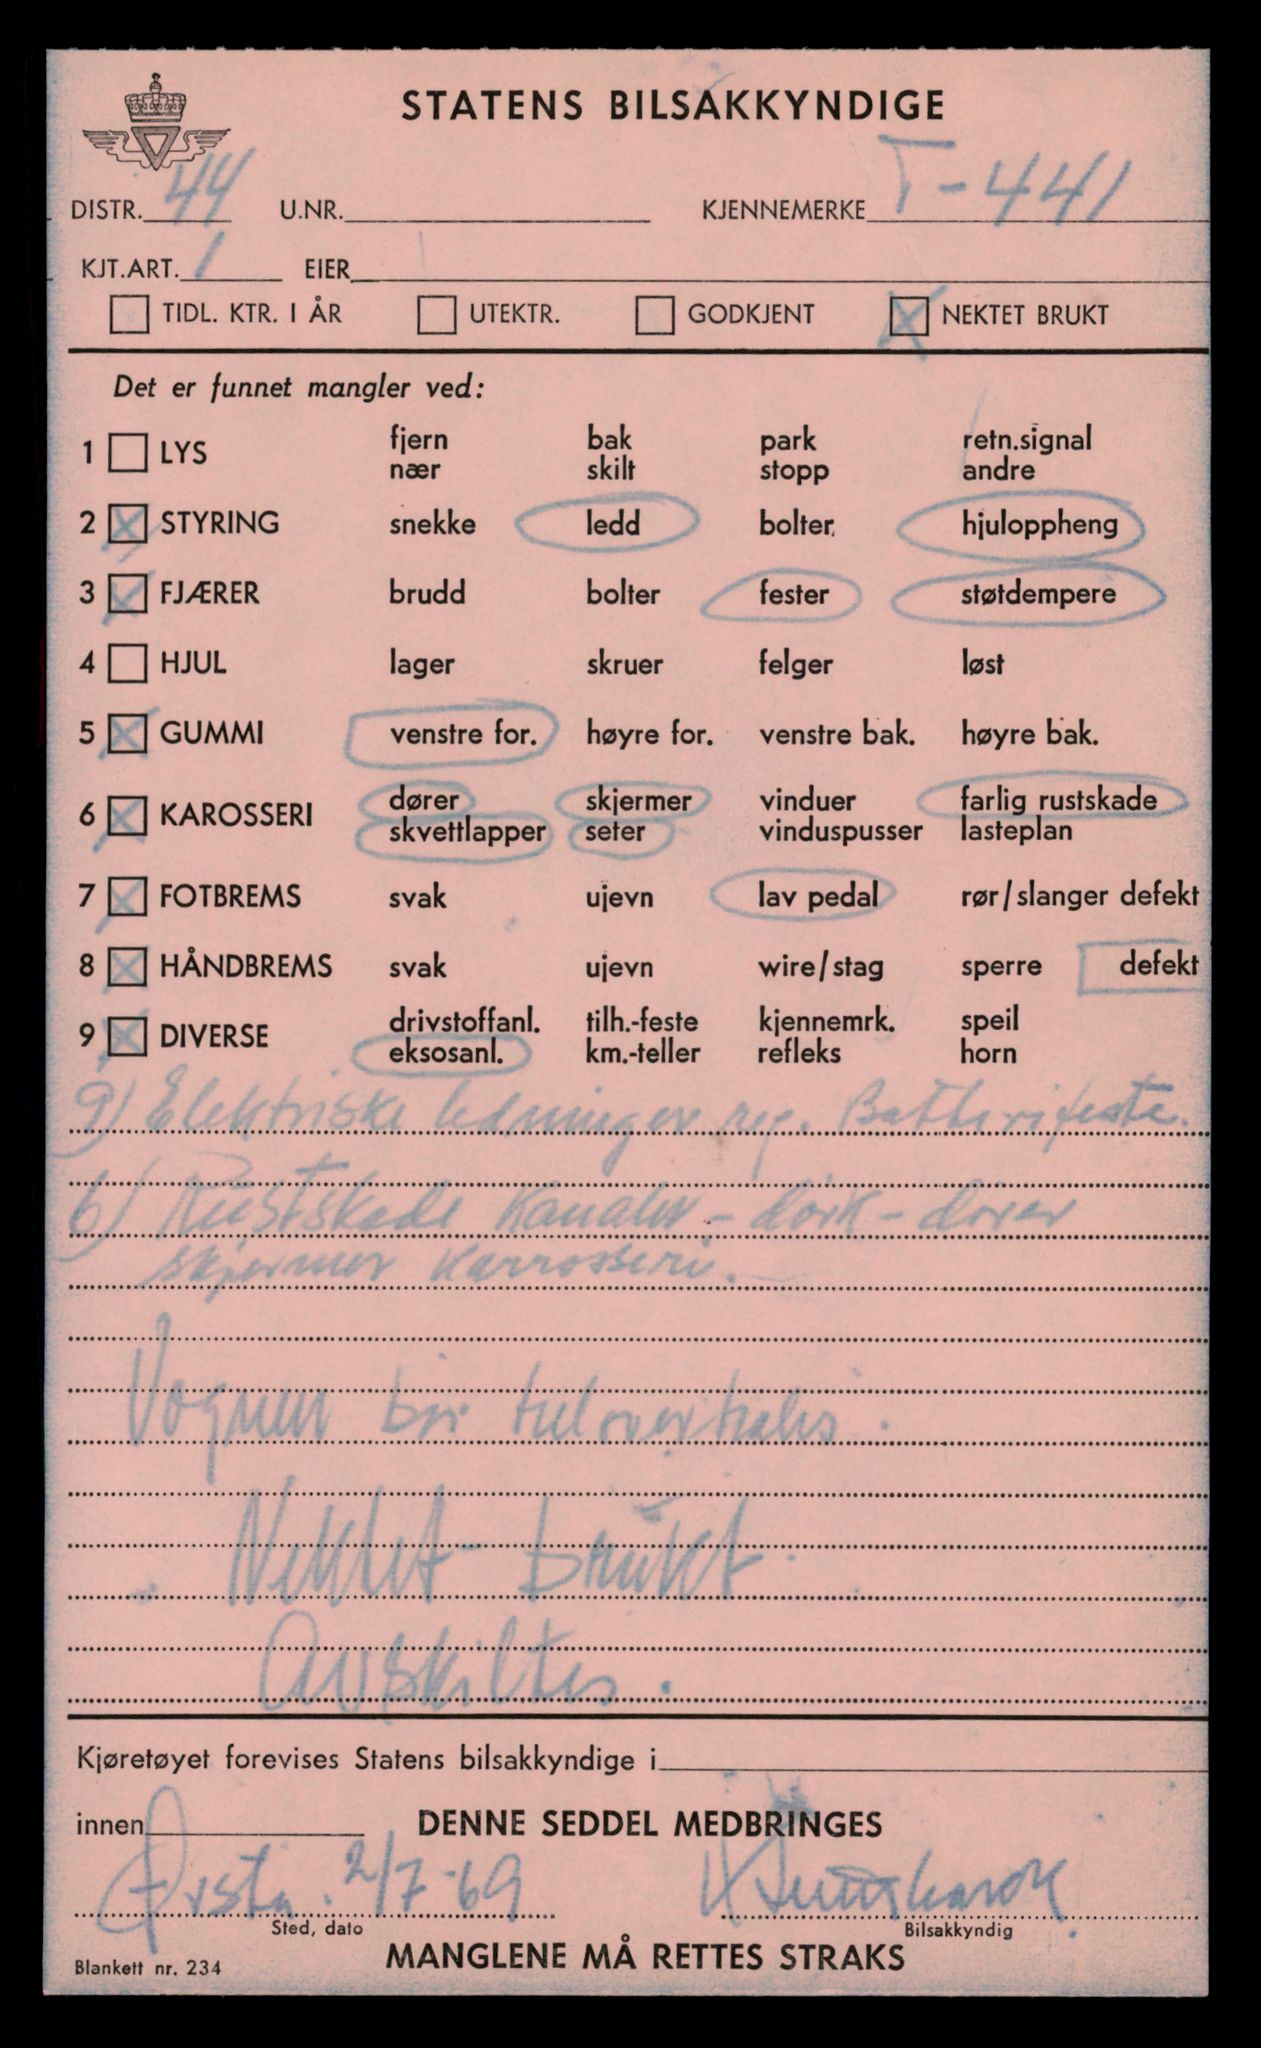 STATENS BILSAKKYNDIGE
DISTR. 44 U.NR. KJENNEMERKE T-441
KJT.ART. 1 EIER
TIDL. KTR. I ÅR UTEKTR. GODKJENT NEKTET BRUKT
Det er funnet mangler ved:
1 LYS fjern bak park retn.signal
nær skilt stopp andre
2 STYRING snekke ledd bolter. hjuloppheng
3 FJÆRER brudd bolter fester støtdempere
4 HJUL lager skruer felger løst
5 GUMMI venstre for. høyre for. venstre bak. høyre bak.
6 KAROSSERI dører skjermer vinduer farlig rustskade
skvettlapper seter vinduspusser lasteplan
7 FOTBREMS svak ujevn lav pedal rør/slanger defekt
8 HÅNDBREMS svak ujevn wire/stag sperre defekt
9 DIVERSE drivstoffanl. tilh.-feste kjennemrk. speil
eksosanl. km.-teller refleks horn
9) Elektriske ledninger rep. Batterifeste.
6) Rustskade Kanaler - dørk - dører
skjermer Karrosseri.
Vognen bør heloverhales.
Nektet brukt.
Avskiltes.
Kjøretøyet forevises Statens bilsakkyndige i
innen DENNE SEDDEL MEDBRINGES
Ørsta. 2/7-69
Sted, dato Bilsakkyndig
Blankett nr. 234 MANGLENE MÅ RETTES STRAKS